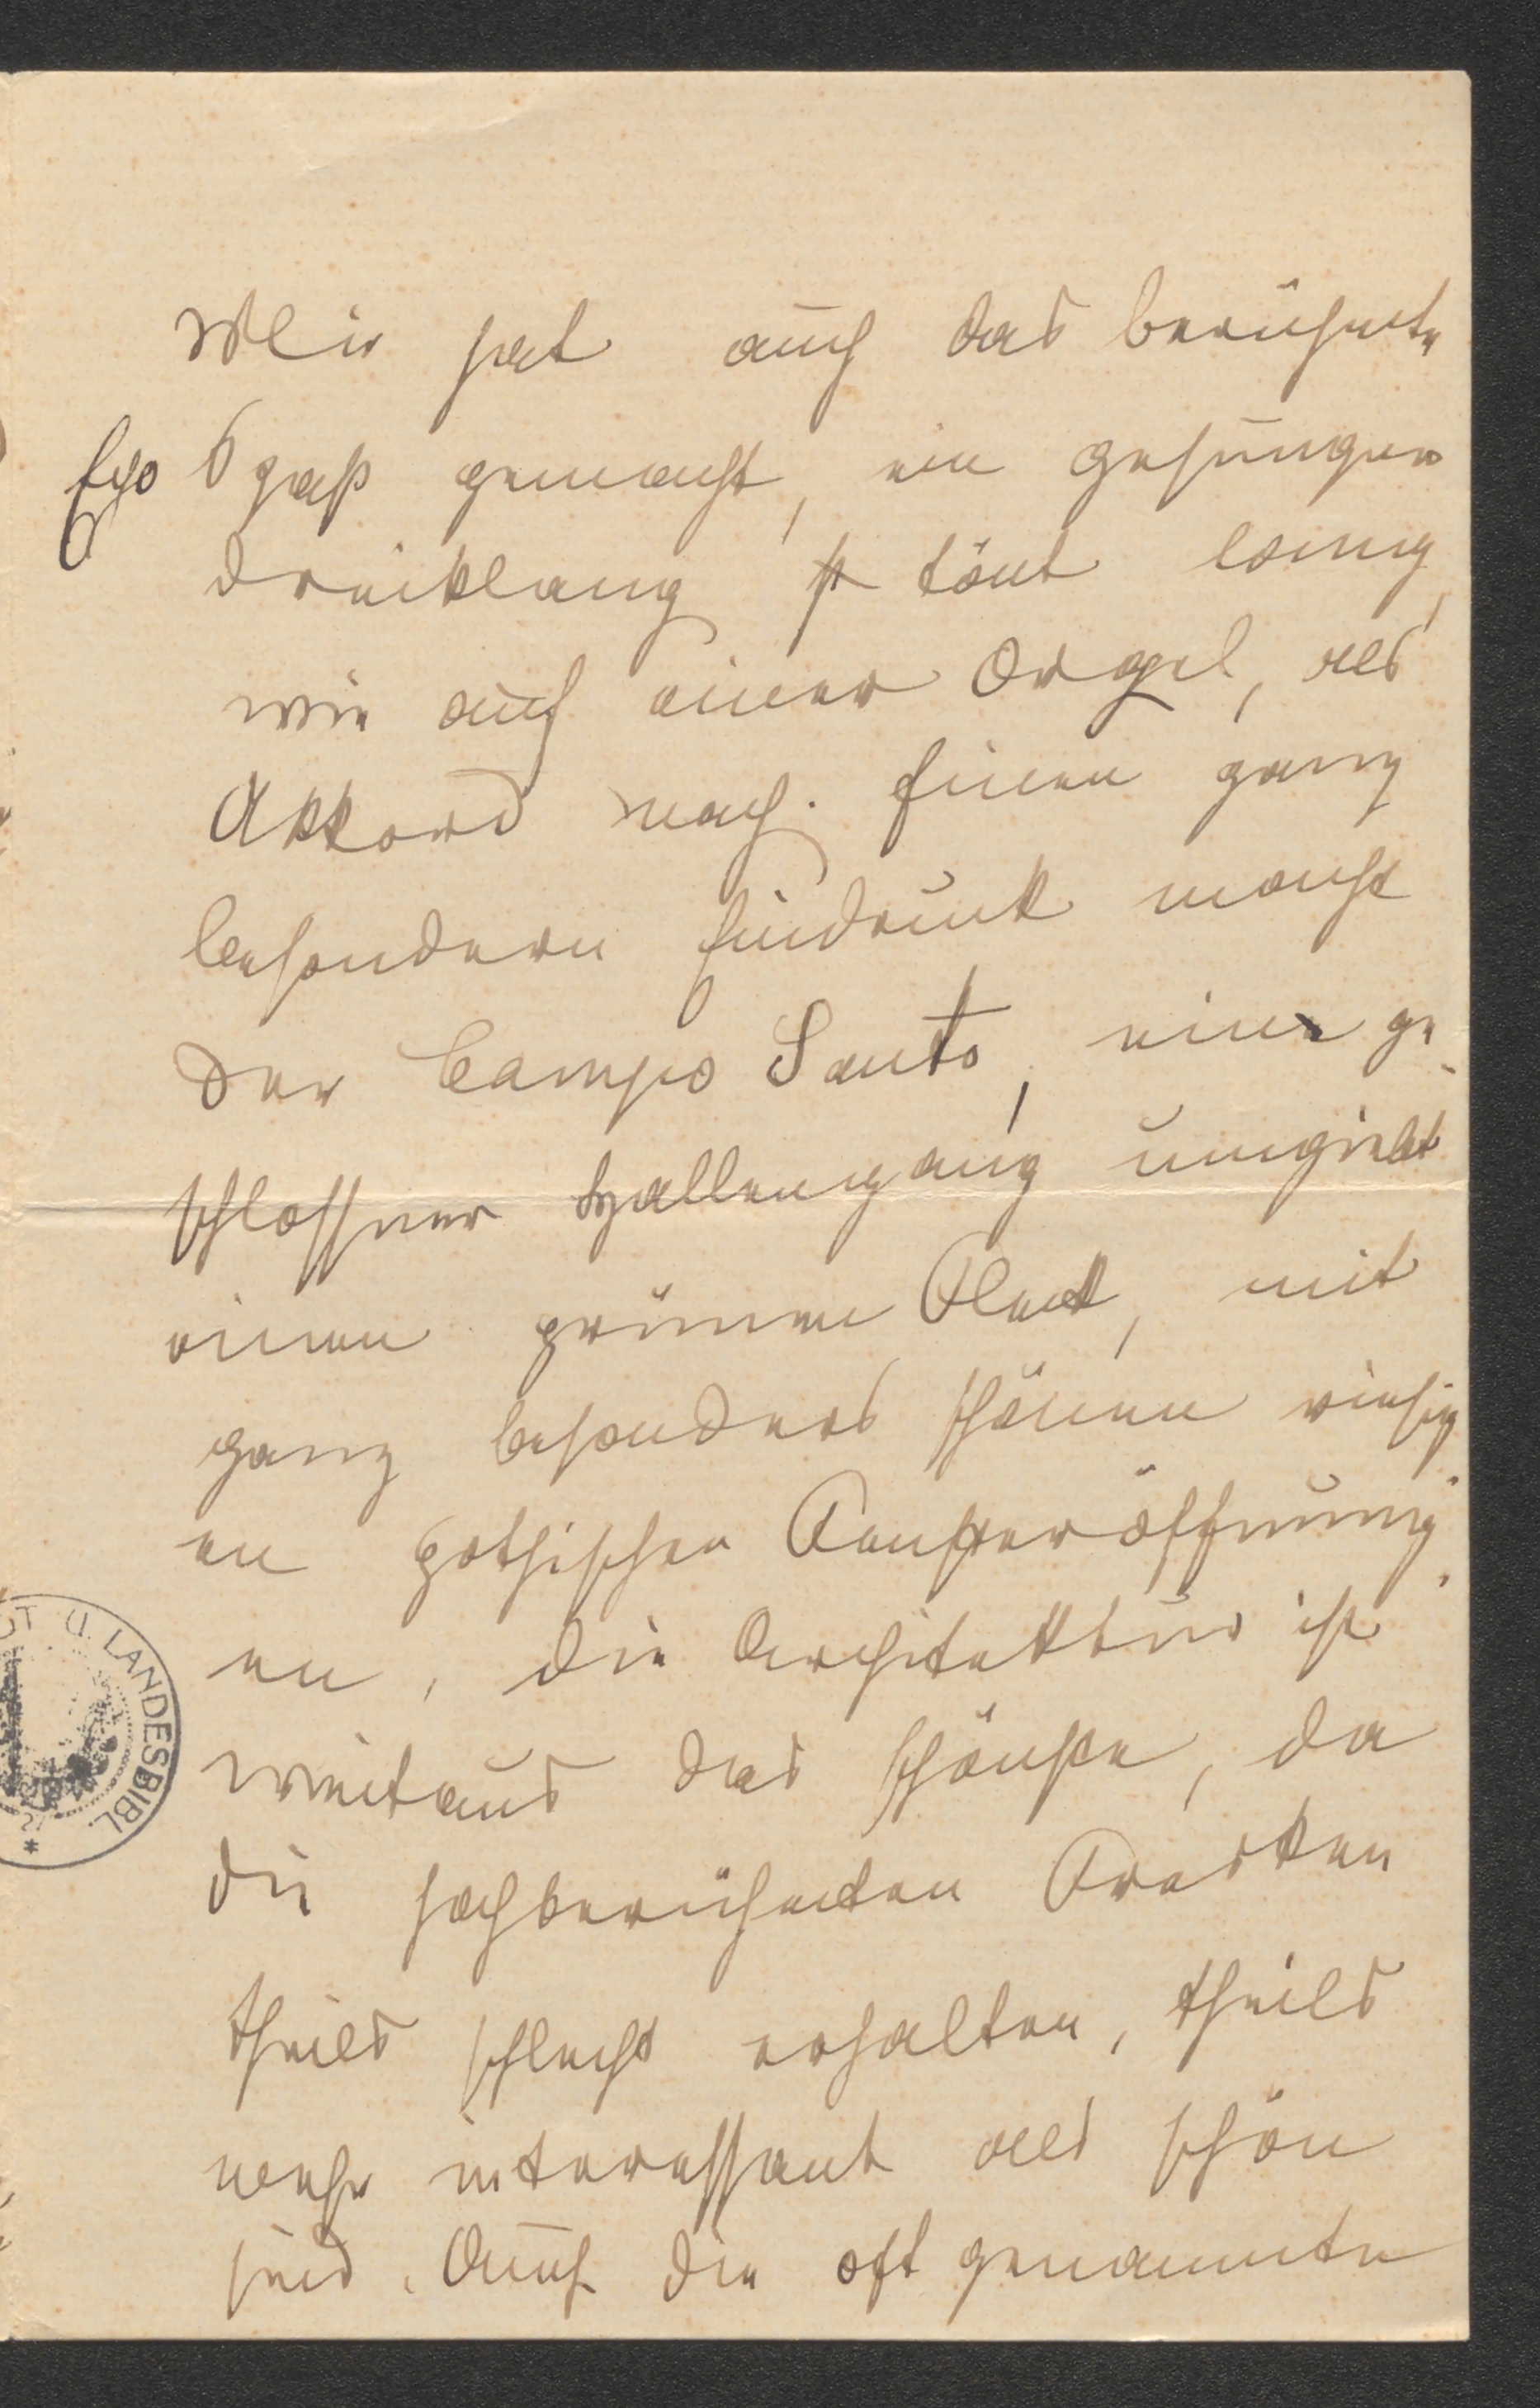 Mir hat auch das berühmte
Echo Spaß gemacht, ein gesungner
Dreiklang tönt lang,
wie auf einer Orgel, als
Akkord nach. Einen ganz
besondern Eindruck macht
der Campo Santo, einer ge-
schlossner Hallengang umgiebt
einen grünen Fleck, mit
ganz besonders schönen riesig-
en gothischen Fensteröffnung-
en, die Architektur ist
weitaus das schönste, da
die hochberühmten Fresken
theils schlecht erhalten, theils
mehr interessant als schön
sind. Auch die oft genannte
T U. LANDESBIBL.